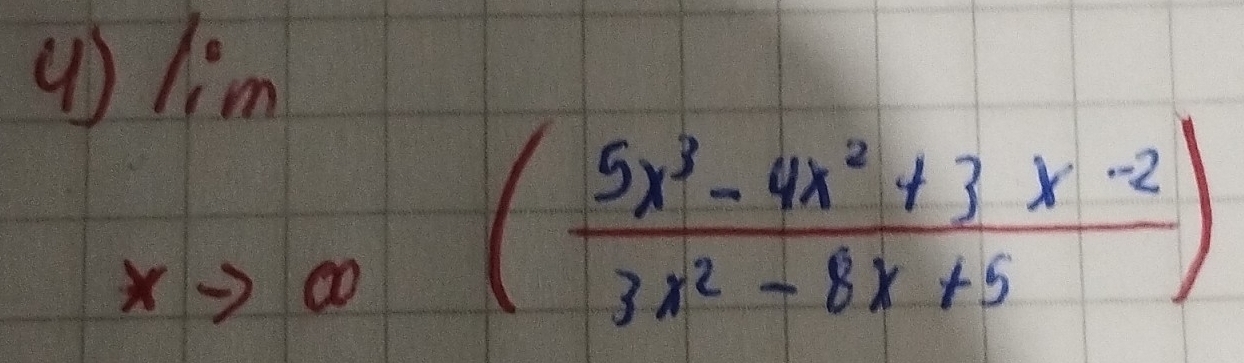 4) lim
x → ∞ ( 5x³ - 4x² + 3 x - 2 / 3x² - 8x + 5 )